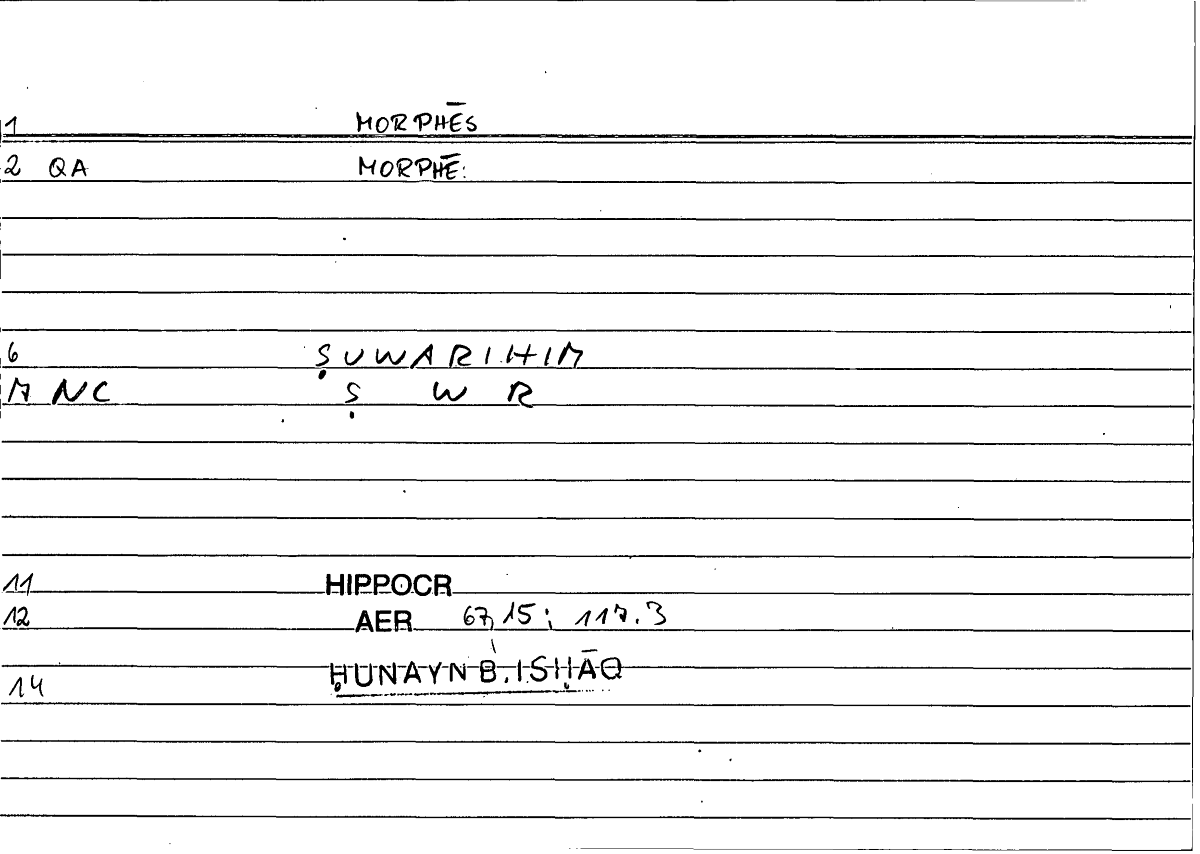 1 MORPHĒS
2 QA MORPHĒ:
6 ṢUWARIHIM
7 NC Ṣ W R
11 HIPPOCR
12 AER 67,15; 117.3
14 ḤUNAYN B. ISḤĀQ